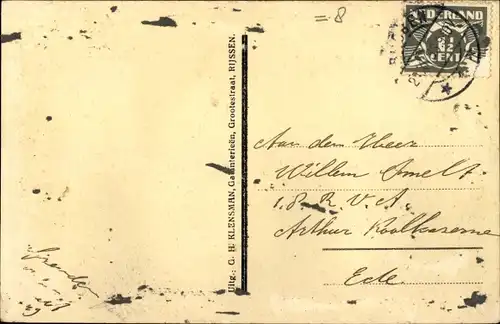 = 8
NEDERLAND
2½
CENT
Uitg.: G. H. KLENSMAN, Galanterieën, Grootestraat, RIJSSEN.
Aan den Heer
Willem Smelt.
1.8. R. V. A.
Arthur Koolkazerne
Ede